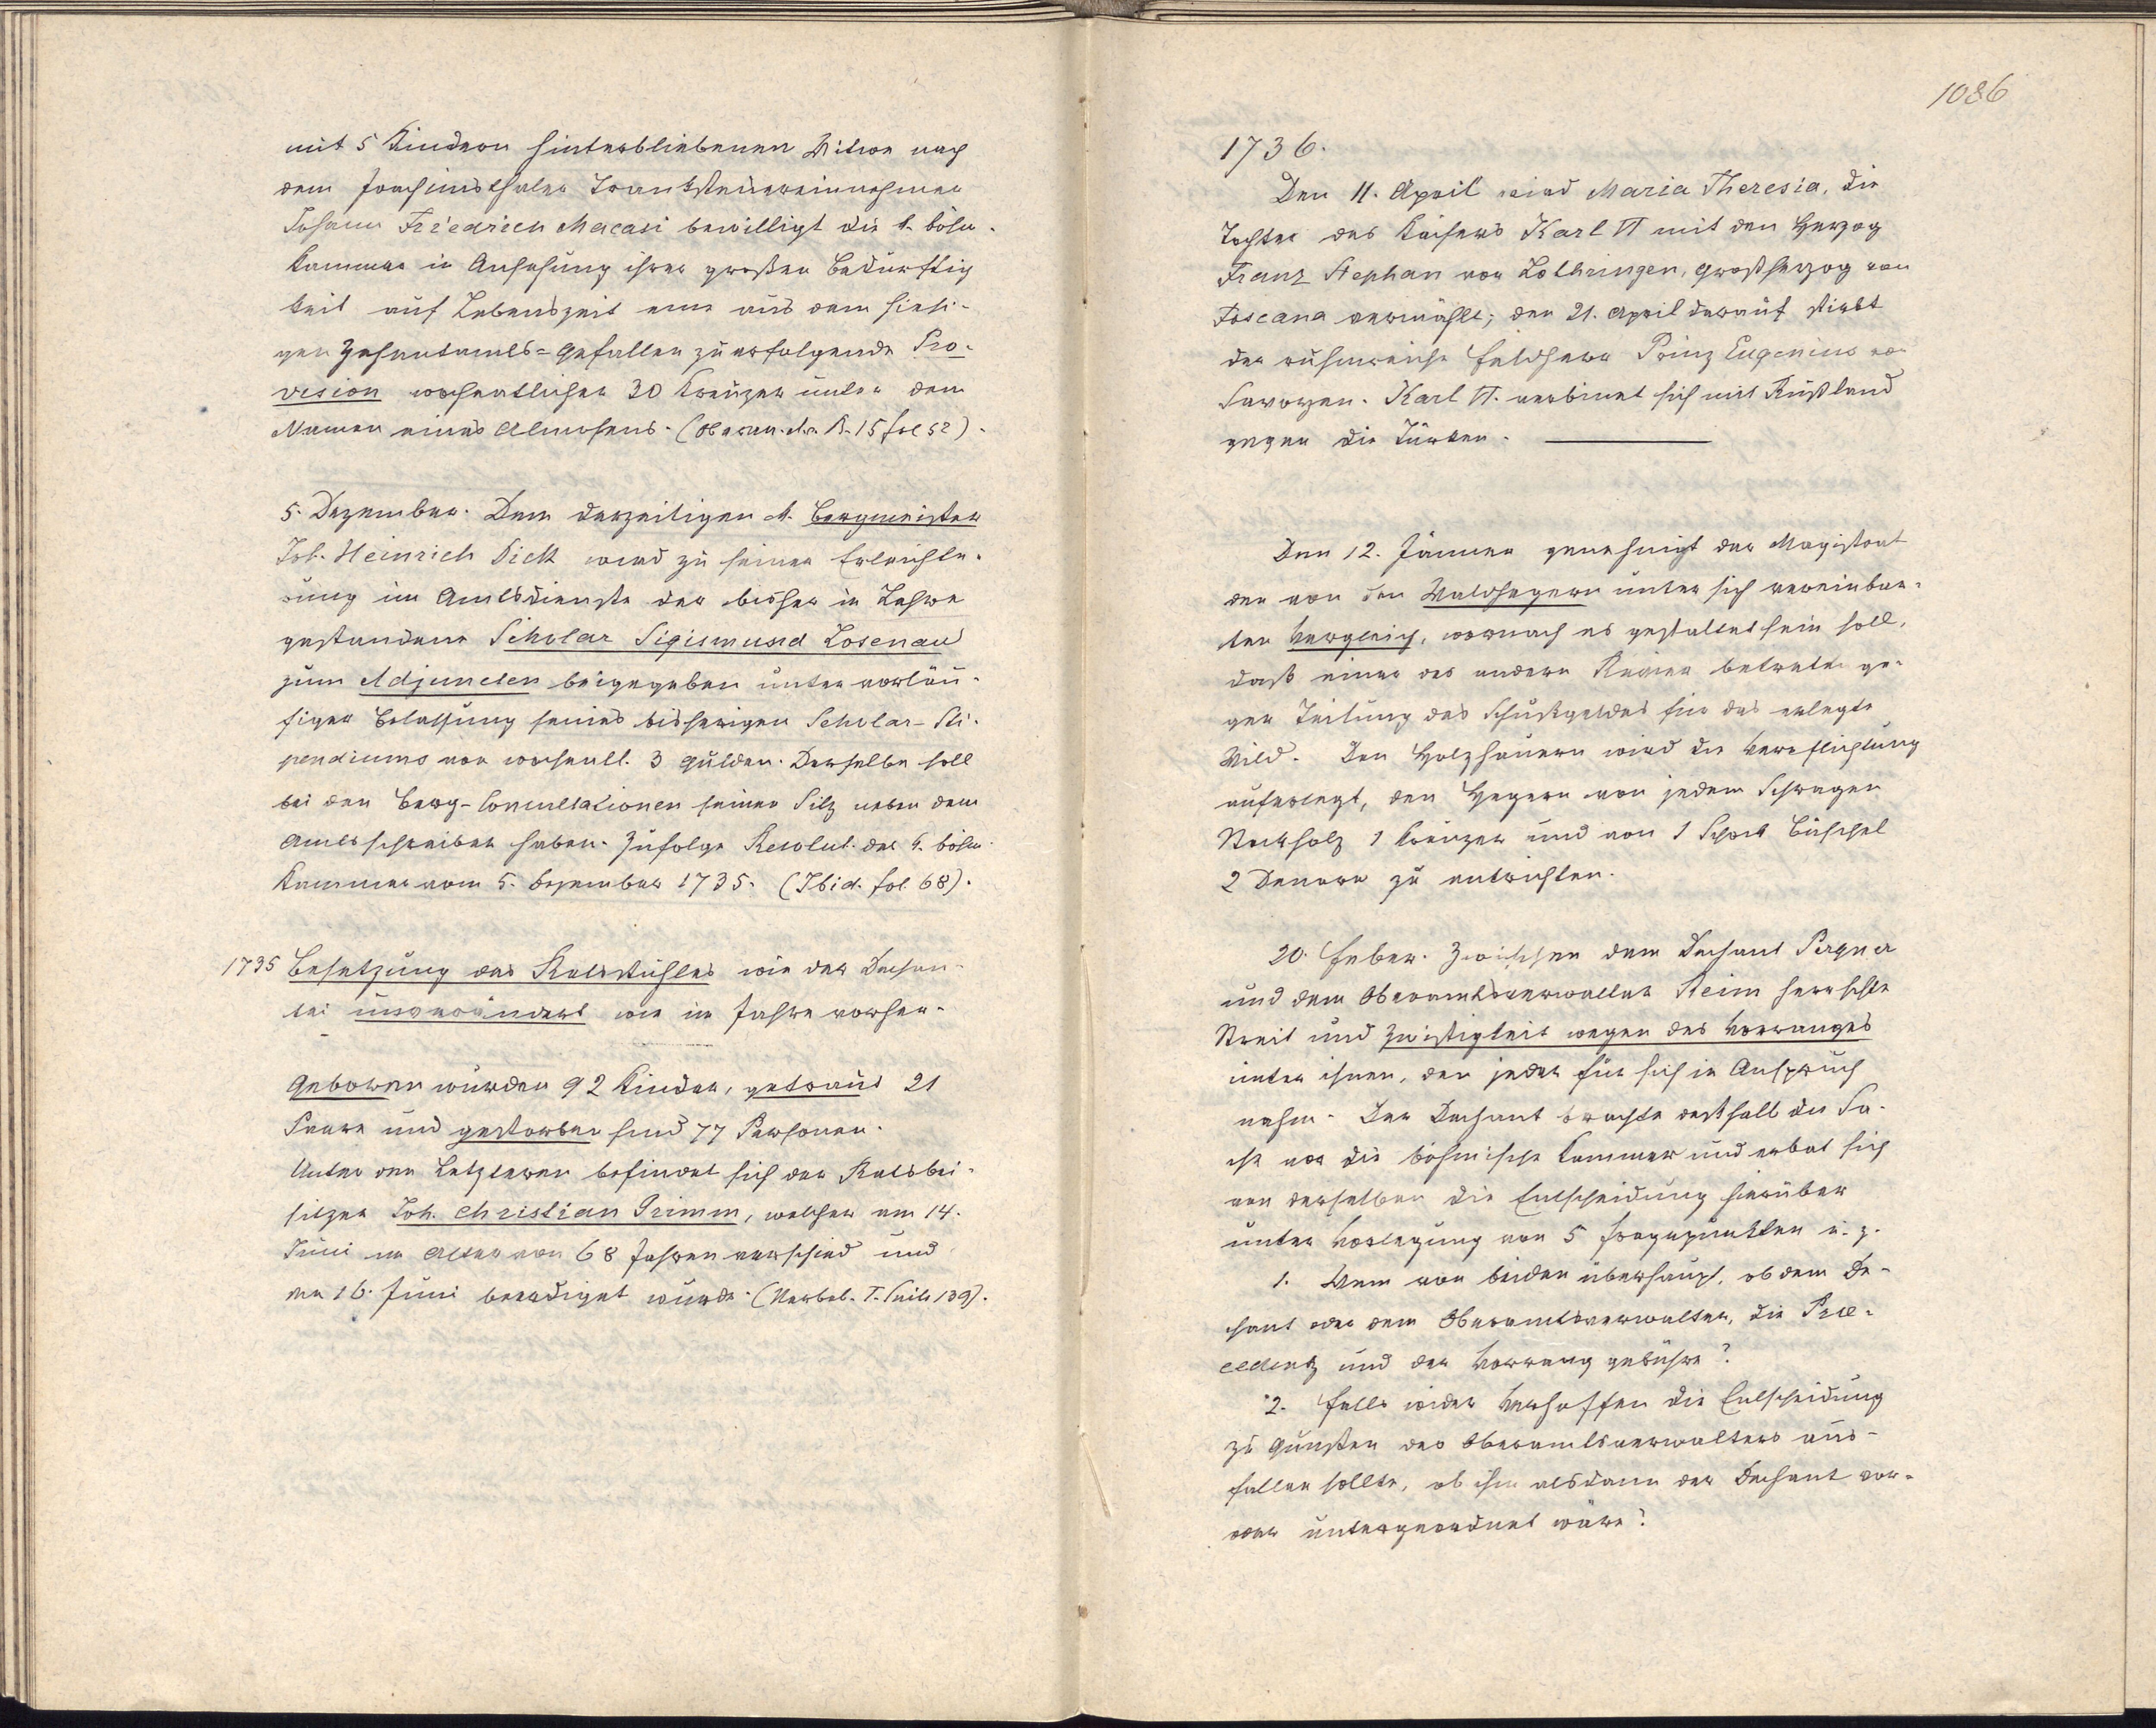 mit 5 Kindern hinterbliebenen Witwe nach
dem Joachimsthaler Tranksteuereinnehmer
Johann Friedrich Macasi bewilligt die k. böhm.
Kammer in Ansehung ihrer großen Bedürftig
keit auf Lebenszeit eine aus dem hiesi-
gen Zehentamts=Gefällen zu erfolgende Pro-
vision wochentlicher 30 Kreuzer unter dem
Namen eines Almosens. (Oberan. R. 15 fol 52).
5. Dezember. Dem derzeitigen k. Bergmeister
Joh. Heinrich Dick wird zu seiner Erleichte-
rung im Amtsdienste der bisher in Lehre
gestandene Scholar Sigismund Losenau
zum Adjuncten beigegeben unter vorläu-
figer Belassung seines bisherigen Scholar-Sti-
pendiums von wochentl. 3 Gulden. Derselbe soll
bei den Berg-Consultationen seinen Sitz neben dem
Amtsschreiber haben. Zufolge Resolut. der k. böhm.
Kammer vom 5. Dezember 1735. (Ibid. fol. 68).
1735 Besetzung des Ratsstuhles wie der Dechan-
tei unverändert wie im Jahre vorher.
Geboren wurden 92 Kinder, getraut 21
Paare und gestorben sind 77 Personen.
Unter den Letzteren befindet sich der Ratsbei-
sitzer Joh. Christian Grimm, welcher am 14.
Juni im Alter von 68 Jahren verschied und
am 16. Juni beerdigt wurde. (Sterbeb. T. Seite 139).
1086
1736.
Den 11. April wird Maria Theresia, die
Tochter des Kaisers Karl VI mit den Herzog
Franz Stephan von Lothringen, Großherzog von
Toscana vermählt; den 21. April darauf stirbt
der ruhmreiche Feldherr Prinz Eugenius von
Savoyen. Karl VI. verbindet sich mit Rußland
gegen die Türken.
Den 12. Jänner genehmigt der Magistrat
den von den Waldhegern unter sich vereinbar-
ten Vergleich, wornach es gestattet sein soll,
daß einer des andern Revier betrete ge-
gen Teilung des Schußgeldes für das erlegte
Wild. Den Holzhauern wird die Verpflichtung
auferlegt, den Hegern von jedem Schragen
Stockholz 1 Kreuzer und von 1 Schock Büschel
2 Denare zu entrichten.
20. Feber. Zwischen dem Dechant Pergner
und dem Oberamtsverwalter Steim herrschte
Streit und Zwistigkeit wegen des Vorranges
unter ihnen, den jeder für sich in Anspruch
nahm. Der Dechant brachte deßhalb die Sa-
che vor die böhmische Kammer und erbat sich
von derselben die Entscheidung hierüber
unter Vorlegung von 5 Fragepunkten u. z.
1. Wem von beiden überhaupt, ob dem De-
chant oder dem Oberamtsverwalter, die Prae-
cedentz und der Vorrang gebühre?
2. Falls wider Verhoffen die Entscheidung
zu Gunsten des Oberamtsverwalters aus-
fallen sollte, ob ihm alsdann der Dechant vor-
oder untergeordnet wäre?